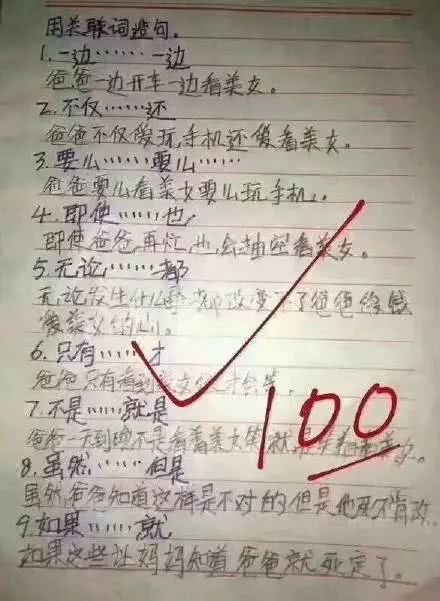 用关联词造句.
1.一边……一边
爸爸一边开车一边看美女。
2.不仅……还
爸爸不仅爱玩手机还爱看美女。
3.要么……要么……
爸爸要么看美女要么玩手机。
4.即使……也
即使爸爸再忙,也会抽空看美女。
5.无论……都
无论发生什么事都改变不了爸爸
爱美女的心。
6.只有……才
爸爸只有看到美女他才会笑。
7.不是……就是
爸爸一天到晚不是看着美女笑就是
8.虽然……但是
虽然爸爸知道这样是不对的但是他死不肯改。
9.如果……就
如果这些让妈妈知道爸爸就死定了。
100